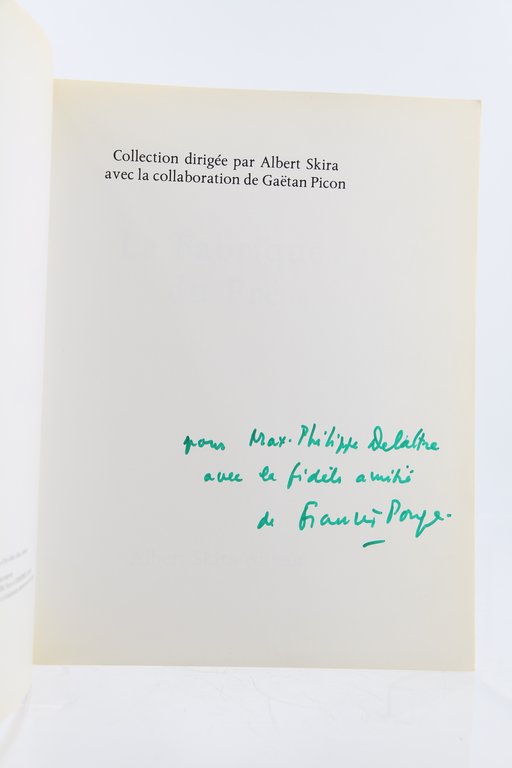 Collection dirigée par Albert Skira
avec la collaboration de Gaëtan Picon
La Fabrique
du Pré
pour Max-Philippe Delattre
avec la fidèle amitié
de Francis Ponge.
Albert Skira